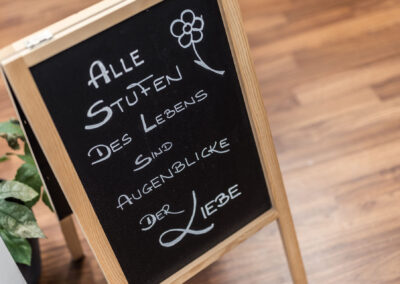 ALLE
STUFEN
DES LEBENS
SIND
AUGENBLICKE
DER LIEBE